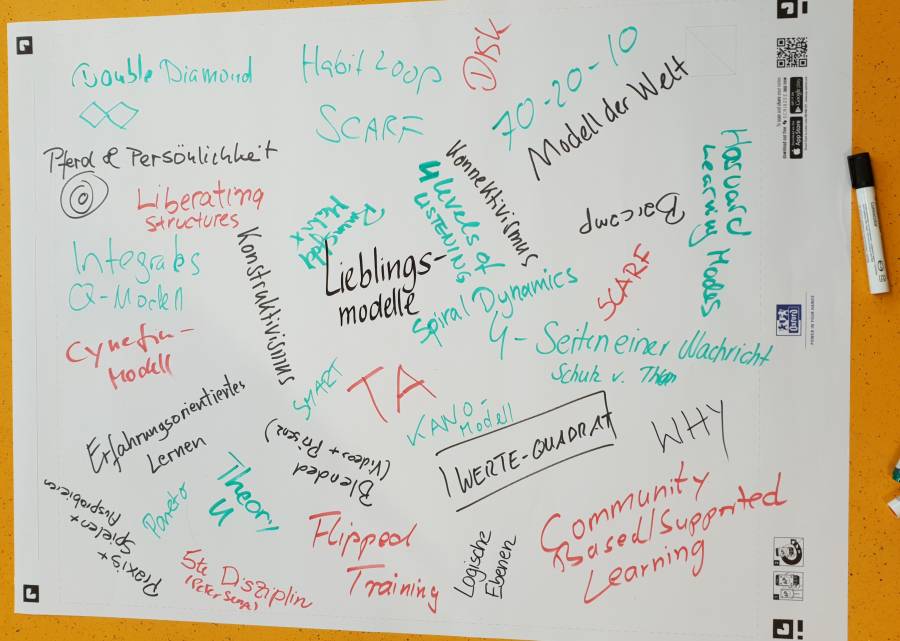 Double Diamond
Habit Loop
DISK
70-20-10
SCARF
Modell der Welt
Pferd & Persönlichkeit
Liberating
Structures
Konnektivismus
4 levels of
LISTENING
Barcamp
Harvard
Learning Modes
Integrales
Q-Modell
Konstruktivismus
Lieblings-
modelle
Spiral Dynamics
SCARF
Cynefin-
Modell
4-Seiten einer Nachricht
Schulz v. Thun
SMART
TA
KANO-
Modell
Erfahrungsorientiertes
Lernen
Blended
(Videos + Präsenz)
WERTE-QUADRAT
WHY
Praxis +
Spielen +
Ausprobieren
Pareto
Theory
U
5te Disziplin
(Peter Senge)
Flipped
Training
Logische
Ebenen
Community
Based/Supported
Learning